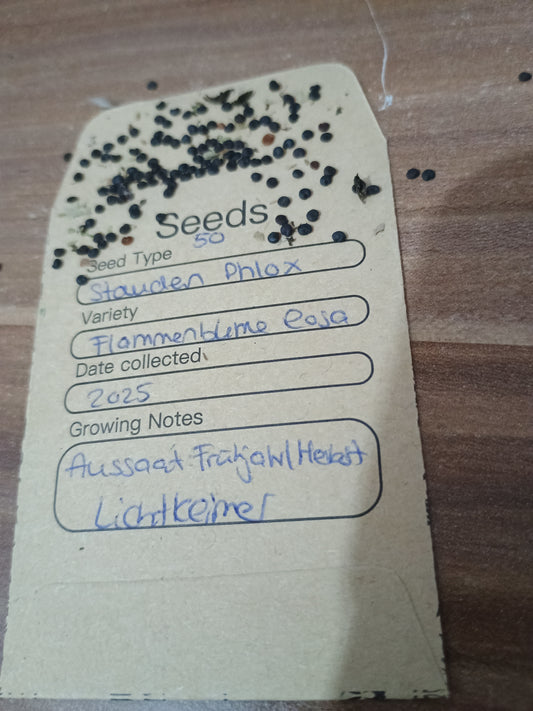 Seeds
50
Seed Type
Stauden Phlox
Variety
Flammenblume Rosa
Date collected
2025
Growing Notes
Aussaat Frühjahr/Herbst
Lichtkeimer